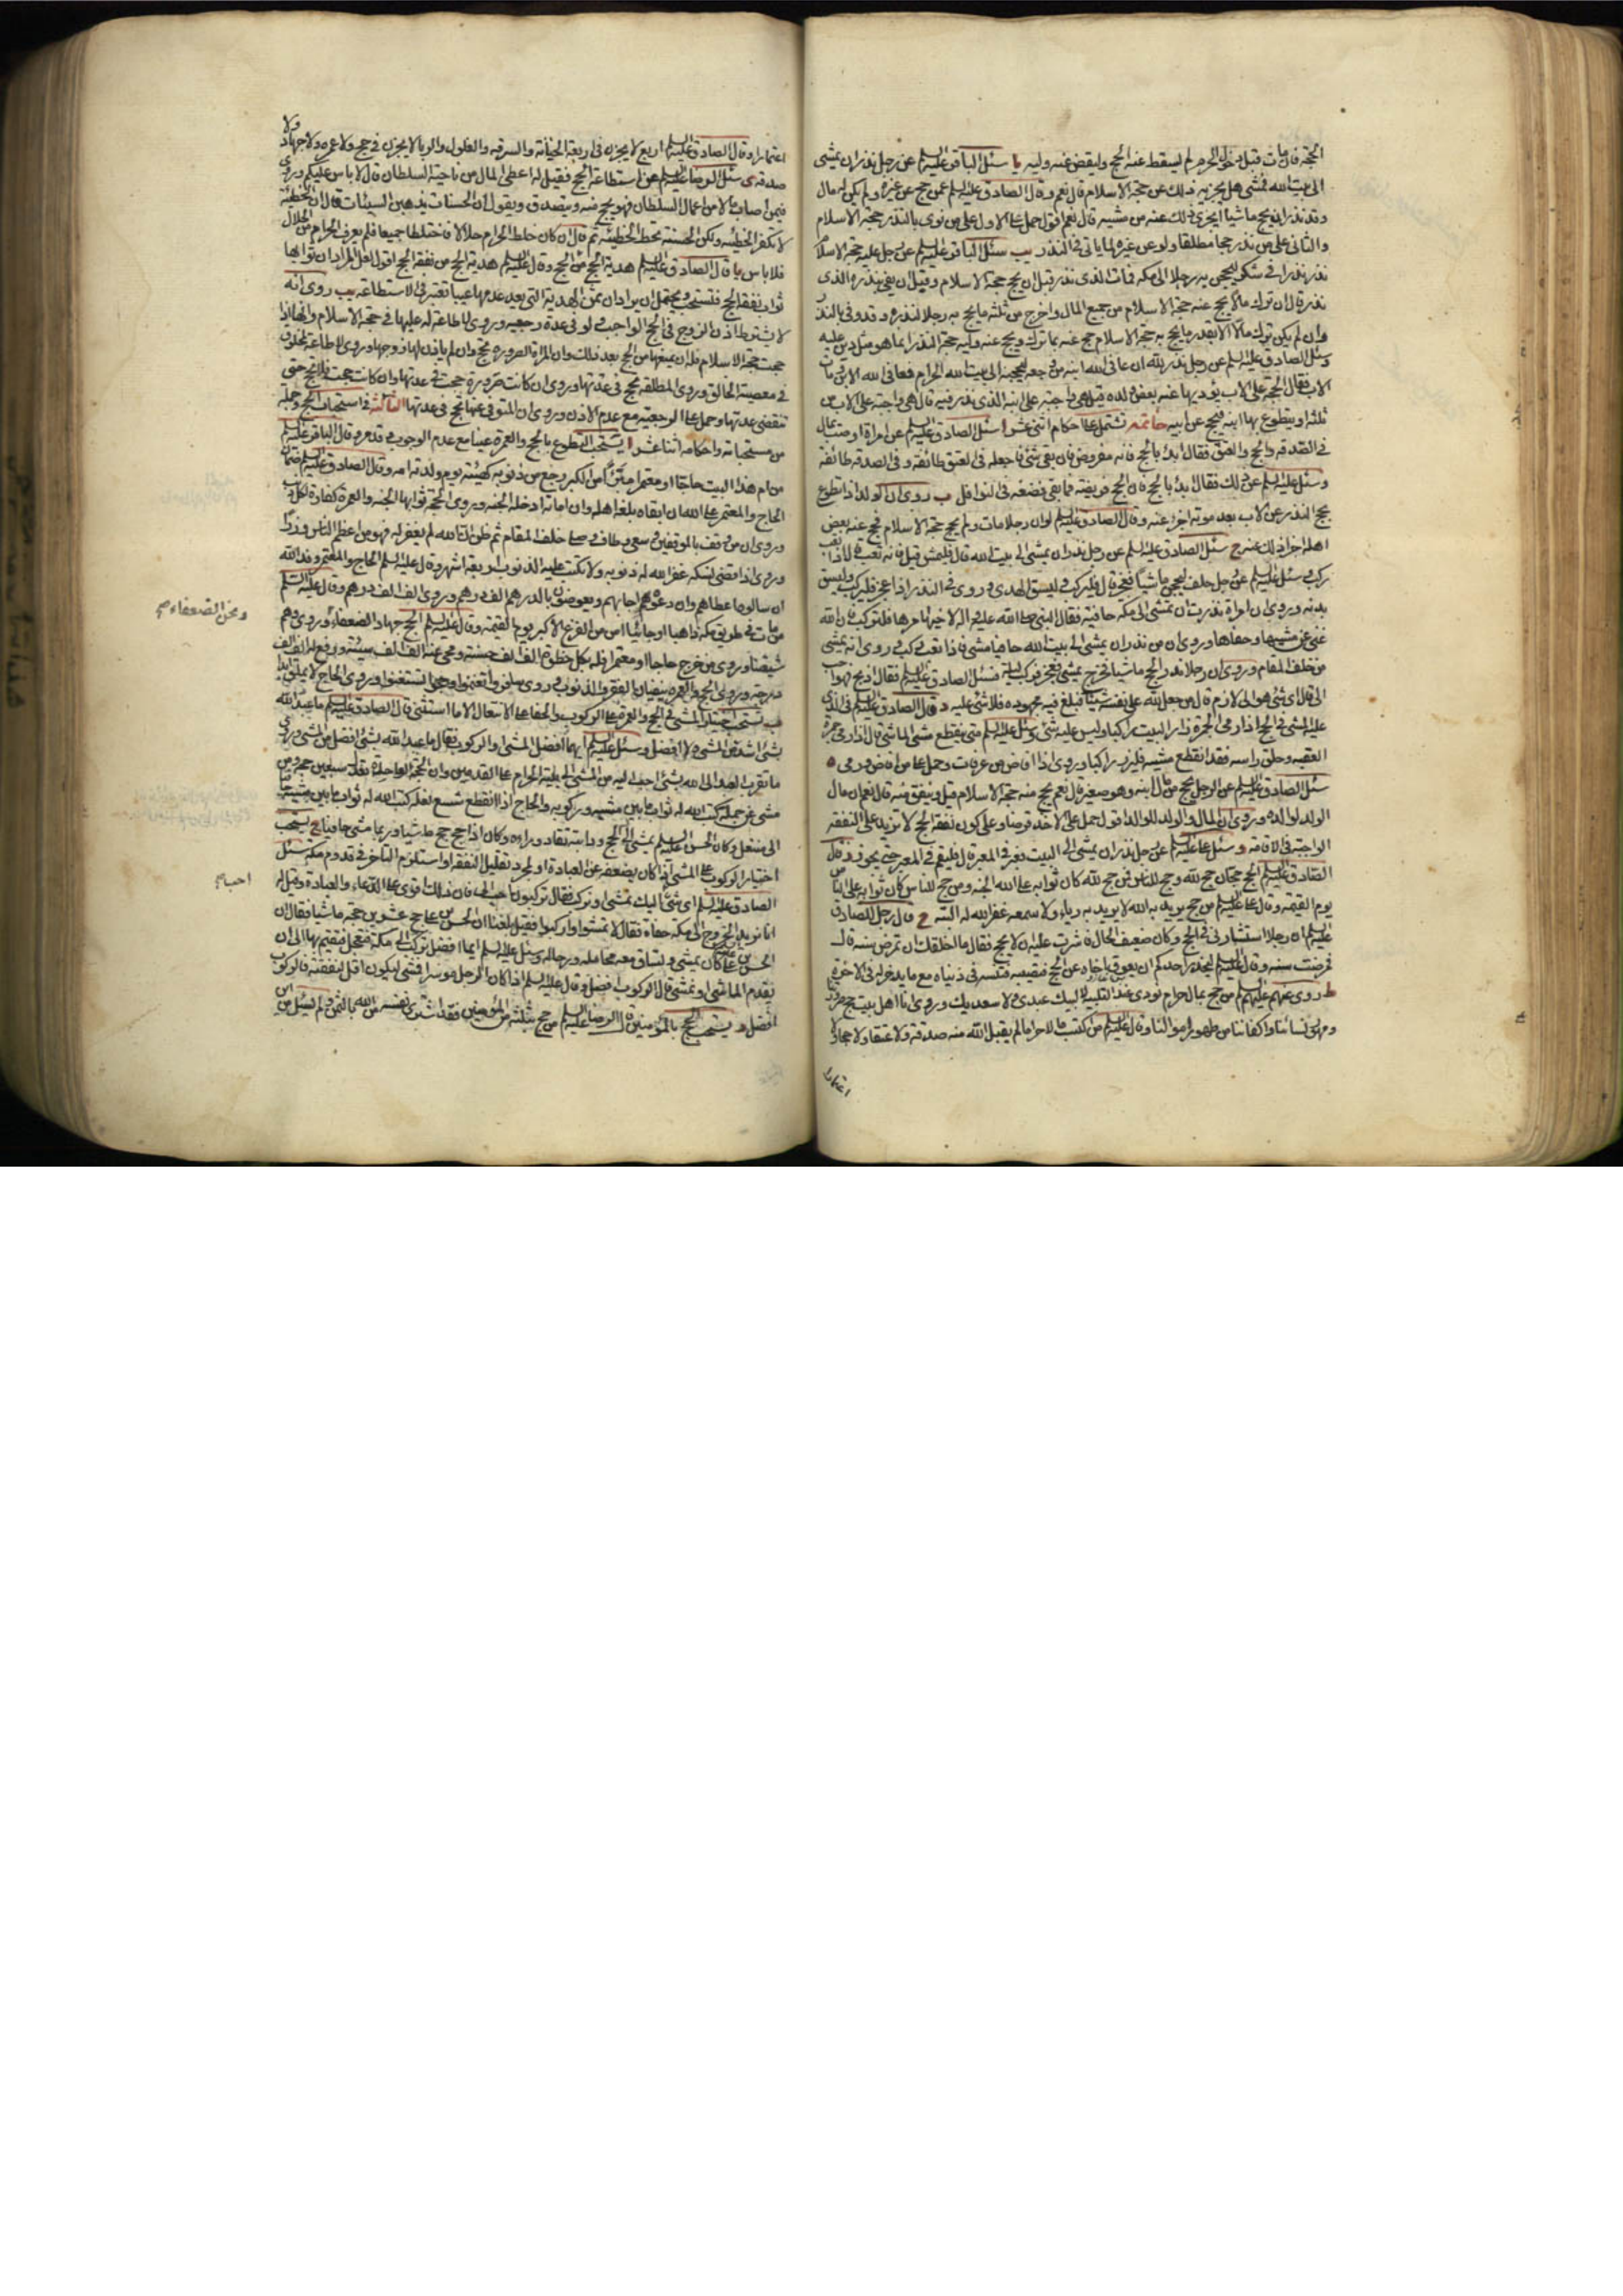 الحجة فان مات قبل دخول الحرم لم يسقط عنه الحج وليقض عنه وليه يا سئل الباقر عليه السلم عن رجل نذر ان يمشى
الى بيت الله فمشى هل يجزيه ذلك عن حجة الاسلام قال نعم وقال الصادق عليه السلم عمن حج عن غيره ولم يكن له مال
وقد نذر ان يحج ماشيا ايجزى ذلك عنه من مشيه قال نعم اقول حمل على الاول على من نوى بالنذر حجة الاسلام
والثانى على من نذر حجا مطلقا ولو عن غيره لما ياتى فى النذر يب سئل الباقر عليه السلم عن رجل عليه حجة الاسلام
نذر نذرا فى شكر ليحجن به رجلا الى مكه فمات الذى نذر قبل ان يحج حجة الاسلام وقبل ان يفى بنذره الذى
نذر قال ان ترك مالا يحج عنه حجة الاسلام من جميع المال واخرج من ثلثه ما يحج به رجلا لنذره وقد وفى بالنذر
وان لم يكن ترك مالا الا بقدر ما يحج به حجة الاسلام حج عنه بما ترك ويحج عنه وليه حجة النذر انما هو مثل دين عليه
وسئل الصادق عليه السلم عن رجل نذر لله ان عافى الله ابنه من وجعه ليحجنه الى بيت الله الحرام فعافى الله الابن ومات
الاب فقال الحجة على الاب يؤديها عنه بعض ولده قيل هى واجبة على ابنه الذى نذر فيه قال هى واجبة على الاب من
ثلثه او يتطوع بها ابنه فيحج عن ابيه خاتمه تشتمل على احكام اثنى عشر ا سئل الصادق عليه السلم عن امراة اوصت بمال
فى الصدقه والحج والعتق فقال ابدأ بالحج فانه مفروض فان بقى شئ فاجعله فى العتق طائفه وفى الصدقه طائفه
وسئل عليه السلم عن ذلك فقال ابدأ بالحج فان الحج فريضه فما بقى فضعه فى النوافل ب روى ان الولد اذا تطوع
بحج النذر عن الاب بعد موته اجزأ عنه وقال الصادق عليه السلم لو ان رجلا مات ولم يحج حجة الاسلام فحج عنه بعض
اهله اجزأ ذلك عنه ج سئل الصادق عليه السلم عن رجل نذر ان يمشى الى بيت الله قال فليمش قيل فانه تعب قال اذا تعب
ركب وسئل عليه السلم عن رجل حلف ليحجن ماشيا فعجز قال فليركب وليسق الهدى وروى فى النذر اذا عجز فليركب وليسق
بدنه وروى ان امراة نذرت ان تمشى الى مكه حافية فقال النبى صلى الله عليه واله لاخيها مرها فلتركب فان الله
غنى عن مشيها وحفاها وروى ان من نذر ان يمشى الى بيت الله حافيا مشى فاذا تعب ركب وروى انه يمشى
من خلف المقام وروى ان رجلا نذر الحج ماشيا فخرج يمشى فعجز فركب ليلة فسئل الصادق عليه السلم فقال اذبح فهو احب
الى قال اى شئ هو الى لازم قال من جعل لله على نفسه شيئا فبلغ فيه مجهوده فلا شئ عليه د قال الصادق عليه السلم فى الذى
عليه المشى فى الحج اذا رمى الجمرة زار البيت راكبا وليس عليه شئ وسئل عليه السلم متى ينقطع مشى الماشى قال اذا رمى جمرة
العقبه وحلق راسه فقد انقطع مشيه فليزر راكبا وروى اذا افاض من عرفات وحمل على من افاض ورمى ه
سئل الصادق عليه السلم عن الرجل يحج من مال ابنه وهو صغير قال نعم يحج منه حجة الاسلام قيل وينفق منه قال نعم ان مال
الولد لوالده وروى ان المال والولد للوالد اقول حمل على الاخذ قرضا وعلى كون نفقه الحج لا تزيد على النفقه
الواجبة فى الاقامه و سئل على عليه السلم عن رجل نذر ان يمشى الى البيت فمر فى المعبر قال فليقم فى المعبر حتى يجوزه ز قال
الصادق عليه السلم الحج حجان حج لله وحج للناس فمن حج لله كان ثوابه على الله الجنه ومن حج للناس كان ثوابه على الناس
يوم القيمه وقال عليه السلم من حج يريد به الله لا يريد به رياء ولا سمعه غفر الله له البتة ح قال رجل للصادق
عليه السلم ان رجلا استشارنى فى الحج وكان ضعيف الحال فاشرت عليه ان لا يحج فقال ما اخلقك ان تمرض سنة قال
فمرضت سنه وقال عليه السلم ليحذر احدكم ان يعوق اخاه عن الحج فتصيبه فتنة فى دنياه مع ما يدخر له فى الاخرة
ط روى عنهم عليهم السلم من حج بمال حرام نودى عند التلبيه لا لبيك عبدى ولا سعديك وروى انا اهل بيت حج صرورتنا
ومهور نسائنا واكفاننا من طهور اموالنا وقال عليه السلم من اكتسب مالا حراما لم يقبل الله منه صدقه ولا عتقا ولا حجا ولا
اعتمارا
اعتمارا وقال الصادق عليه السلم اربع لا يجزن فى اربعة الخيانة والسرقه والغلول والربا لا يجزن فى حج ولا عمره ولا جهاد ولا
صدقه ى سئل الرضا عليه السلم عن استطاعة الحج فقيل له اعطى المال من ناحية السلطان قال لا باس عليكم وروى
فيمن اصاب مالا من اعمال السلطان فهو يحج منه ويتصدق ويقول ان الحسنات يذهبن السيئات قال ان الخطيئة
لا تكفر الخطيئه ولكن الحسنة تحط الخطيئه ثم قال ان كان خلط الحرام حلالا فاختلطا جميعا فلم يعرف الحرام من الحلال
فلا باس يا قال الصادق عليه السلم هدية الحج من الحج وقال عليه السلم هدية الحج من نفقة الحج اقول لعل المراد ان ثوابها
ثواب نفقة الحج فتستحب ويحتمل ان يراد ان ثمن الهدية التى يعد عدمها عيبا تعتبر فى الاستطاعه يب روى انه
لا يشترط اذن الزوج فى الحج الواجب ولو فى عدة رجعيه وروى لا طاعة له عليها فى حجة الاسلام وانها اذا
حجت حجة الاسلام فله ان يمنعها من الحج بعد ذلك وان المراة الصروره تحج وان لم ياذن لها زوجها وروى لا طاعة لمخلوق
فى معصية الخالق وروى المطلقه تحج فى عدتها وروى ان كانت صرورة حجت فى عدتها وان كانت حجت فلا تحج حتى
تنقضى عدتها وحمل على الرجعيه مع عدم الاذن وروى ان المتوفى عنها تحج فى عدتها الثالث فى استحباب الحج وجملة
من مستحباته واحكامه اثنا عشر ا يستحب التطوع بالحج والعمرة عينا مع عدم الوجوب وقد مر وقال الباقر عليه السلم
من ام هذا البيت حاجا او معتمرا مبرءا من الكبر رجع من ذنوبه كهيئته يوم ولدته امه وقال الصادق عليه السلم ضمان
الحاج والمعتمر على الله ان ابقاه بلغه اهله وان اماته ادخله الجنه وروى الحجة ثوابها الجنه والعمرة كفارة لكل ذنب
وروى ان من وقف بالموقفين وسعى وطاف وصلى خلف المقام ثم ظن ان الله لم يغفر له فهو من اعظم الناس وزرا
وروى اذا قضى نسكه غفر الله له ذنوبه ولا تكتب عليه الذنوب اربعة اشهر وقال عليه السلم الحاج والمعتمر وفد الله
ان سالوه اعطاهم وان دعوه اجابهم ويعوضون بالدرهم الف درهم وروى الف الف درهم وقال عليه السلم
من مات فى طريق مكه ذاهبا او جائيا امن من الفزع الاكبر يوم القيمه وقال عليه السلم الحج جهاد الضعفاء وروى وهم
شيعتنا وروى من خرج حاجا او معتمرا فله بكل خطوة الف الف حسنه ومحى عنه الف الف سيئه ورفع له الف الف
درجه وروى الحج والعمره ينفيان الفقر والذنوب وروى سافروا تغنموا وحجوا تستغنوا وروى الحاج لا يملق ابدا
ب يستحب اختيار المشى فى الحج والعمرة على الركوب والحفا على الانتعال الا ما استثنى قال الصادق عليه السلم ما عبد الله
بشئ اشد من المشى ولا افضل وسئل عليه السلم ايهما افضل المشى او الركوب فقال ما عبد الله بشئ افضل من المشى وروى
ما تقرب العبد الى الله بشئ احب اليه من المشى الى بيته الحرام على القدمين وان الحجة الواحدة تعدل سبعين حجه ومن
مشى عن جمله كتب الله له ثواب ما بين مشيه وركوبه والحاج اذا انقطع شسع نعله كتب الله له ثواب ما بين مشيه حافيا
الى منتعل وكان الحسن عليه السلم يمشى الى الحج ودابته تقاد وراءه وكان اذا حج حج ماشيا وربما مشى حافيا ج يستحب
اختيار الركوب على المشى اذا كان يضعفه عن العبادة او لمجرد تقليل النفقه او استلزم التاخر فى قدوم مكه سئل
الصادق عليه السلم اى شئ احب اليك نمشى او نركب فقال تركبون احب الى فان ذلك اقوى على الدعاء والعبادة وقيل له
انا نريد الخروج الى مكه حفاة فقال لا تمشوا واركبوا فقيل بلغنا ان الحسن بن على حج عشرين حجة ماشيا فقال ان
الحسن بن على كان يمشى وتساق معه محامله ورحاله وسئل عليه السلم ايما افضل نركب الى مكة فنعجل فنقيم بها الى ان
يقدم الماشى او نمشى قال الركوب افضل وقال عليه السلم اذا كان الرجل موسرا فمشى ليكون اقل لنفقته فالركوب
افضل د يستحب الحج بالمؤمنين قال الرضا عليه السلم من حج بثلثة من المؤمنين فقد اشترى نفسه من الله بالثمن ولم يسئل من اين
ونحن الضعفاء صح
احب صح